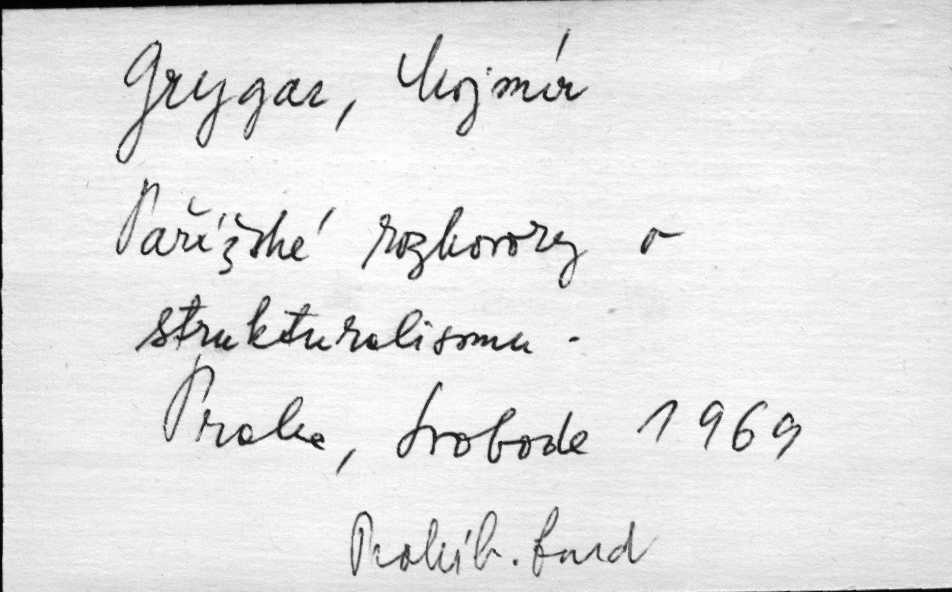 Grygar, Mojmír
Pařížské rozhovory o
strukturalismu.
Praha, Svoboda 1969
Prohib. fond